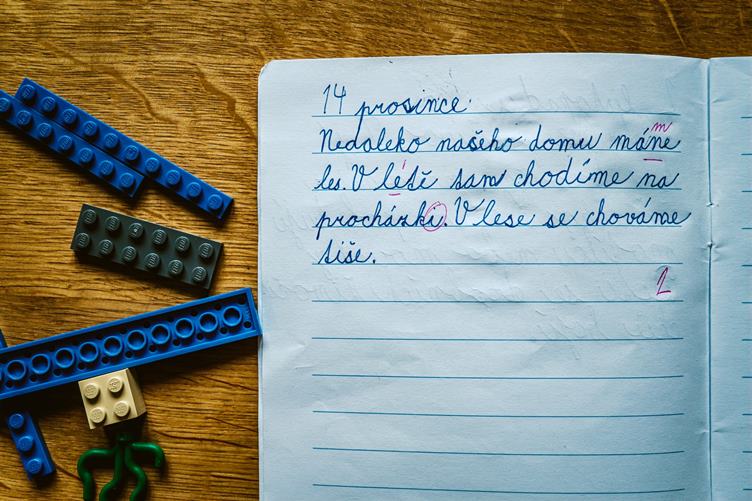 14 prosince.
Nedaleko našeho domu máme
les. V létě tam chodíme na
procházki. V lese se chováme
tiše.
2